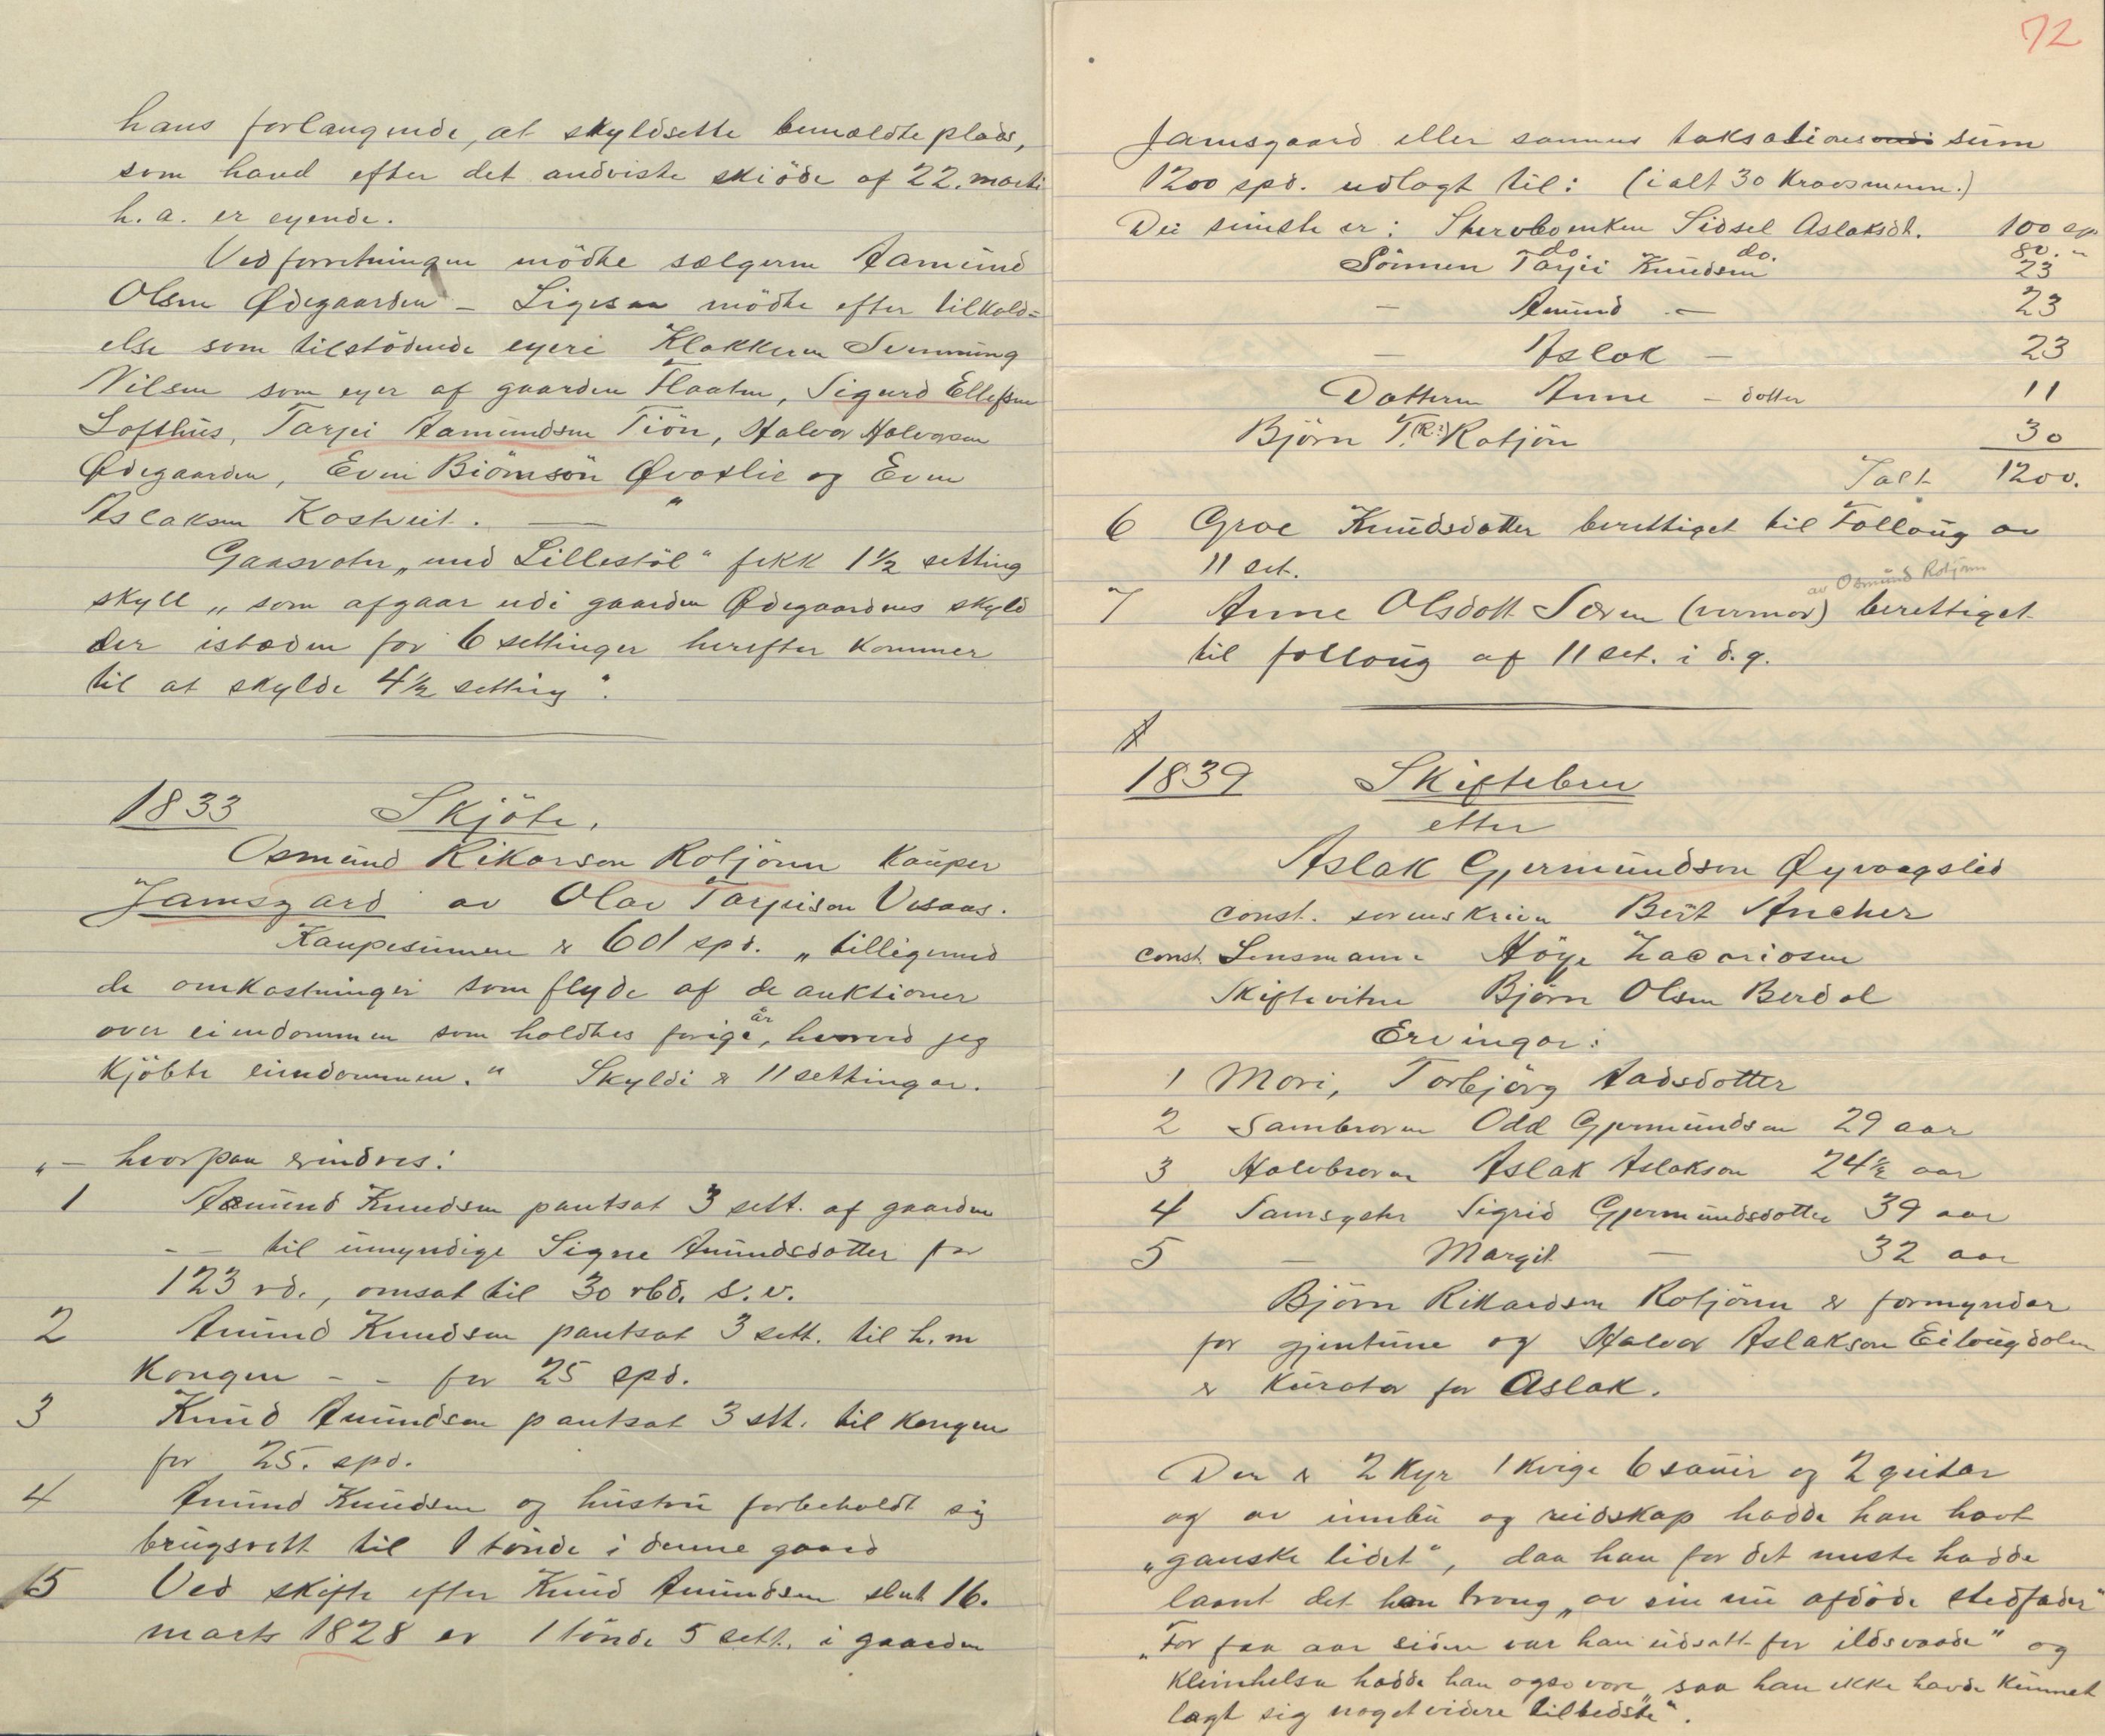 hans forlangende, at skyldsette bemældte plads,
som hand efter det andviste skiöde af 22. marti
h. a. er eyende.
Ved forretningen mödte sælgeren Aamund
Olsen Ødegaarden — Ligesaa mödte efter tilkald=
else som tilstödende eyere Klokkeren Svenning
Nilsen som eyer af gaarden Flaaten, Sigurd Ellefsen
Lofthus, Tarjei Aamundsen Tiön, Halvor Halvorsen
Ødegaarden, Even Biörnsön Qvaslie og Even
Aslaksen Kostveit. — "
Gaasvaten „med Lillestöl" fekk 1½ setting
skyll „som afgaar udi gaarden Ødegaardens skyld
der istæden for 6 settinger herefter kommer
til at skylde 4½ setting".
1833 Skjöte.
Osmund Rikarson Rotjönn kauper
Jamsgard av Olav Tarjeison Vesaas.
Kaupesummen er 601 spd. „tilligemed
de omkostninger som flyde af de auktioner
over eiendommen som holdtes forige år, hvorved jeg
kjöbte eiendommen." Skyldi er 11 settingar.
„— hvorpaa erindres:
1 Aamund Knudsen pantsat 3 sett. af gaarden
– – til umyndige Signe Amundsdotter for
123 rd., omsat til 30 rbd. s.v.
2 Amund Knudsen pantsat 3 sett. til h.m
Kongen – – for 25 spd.
3 Knud Amundsen pantsat 3 sett. til kongen
for 25. spd.
4 Amund Knudsen og hustru forbeholdt sig
brugsrett til 1 tönde i denne gaard
5 Ved skifte efter Knud Amundsen slut 16.
marts 1828 er 1 tönde 5 sett. i gaarden
72
Jamsgaard eller sammes taksations sum
1200 spd. udlagt til: (ialt 30 Kravsmenn.)
Dei siste er: Stervboenken Sidsel Aslaksdt. 100 sp
do do. 80. "
Sönnen Tarjei Knudsen 23
— Amund — 23
— Aslak — 23
Dattern Anne — dotter 11
Björn T. (R:) Rotjön 30
Ialt 1200.
6 Groe Knudsdotter berettiget til Follaug av
11 set.
av Osmund Rotjönn
7 Anne Olsdott. (vermor) berettiget
til follaug af 11 set. i d.g.
1839 Skiftebrev
etter
Aslak Gjermundson Øyvaagslid
const. sorenskriver Bert Ancher
const. Lensmann Höye Zacariasen
Skiftevitne Björn Olsen Berdal
Ervingar:
1 Mori, Torbjörg Aadsdotter
2 Sambroren Odd Gjermundsen 29 aar
3 Halvbroren Aslak Aslakson 24½ aar
4 Samsyster Sigrid Gjermundsdotter 39 aar
5 — Margit — 32 aar
Björn Rikardsen Rotjönn er formyndar
for gjentune og Halvor Aslakson Eilaugdalen
er kurator for Aslak.
Der er 2 kyr 1 kvige 6 sauir og 2 geitar
og av innbu og reidskap hadde han havt
„ganske lidet", daa han for det meste hadde
laant det han trong „av sin nu afdöde stedfader"
„For faa aar siden var han udsatt for ildsvaade" og
kleinhelsa hadde han ogso vore, „saa han ikke havde kunnet
lagt sig noget videre tilbedste".